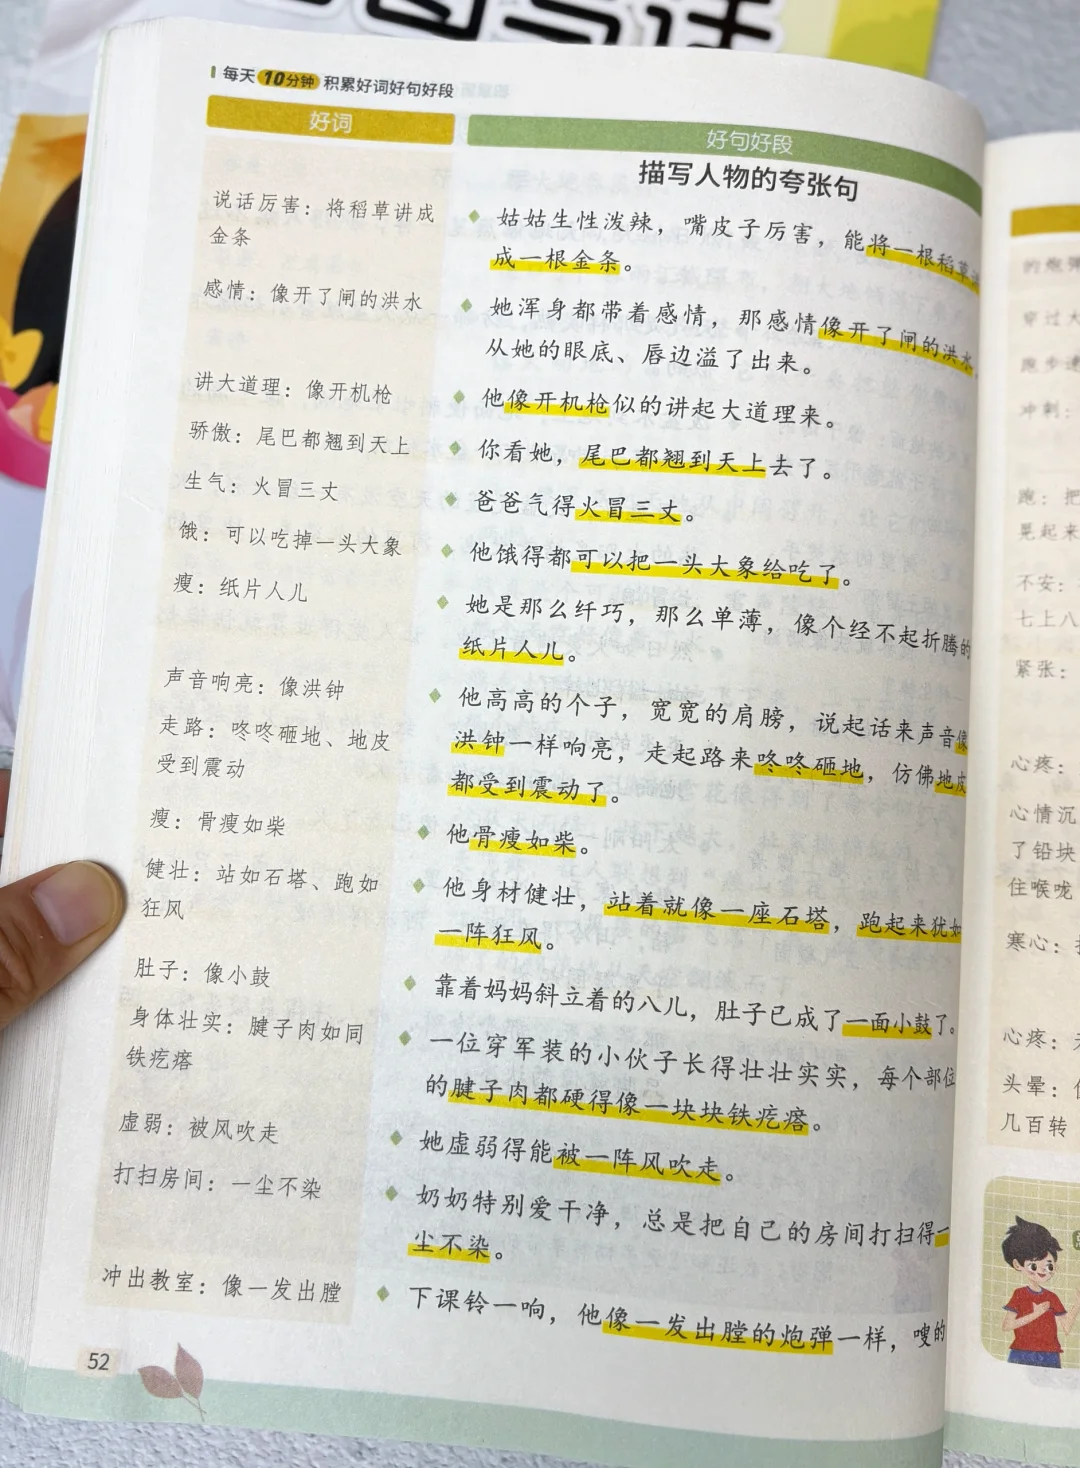 每天10分钟 积累好词好句好段
好词
说话厉害：将稻草讲成
金条
感情：像开了闸的洪水
讲大道理：像开机枪
骄傲：尾巴都翘到天上
生气：火冒三丈
饿：可以吃掉一头大象
瘦：纸片人儿
声音响亮：像洪钟
走路：咚咚砸地、地皮
受到震动
瘦：骨瘦如柴
健壮：站如石塔、跑如
狂风
肚子：像小鼓
身体壮实：腱子肉如同
铁疙瘩
虚弱：被风吹走
打扫房间：一尘不染
冲出教室：像一发出膛
好句好段
描写人物的夸张句
姑姑生性泼辣，嘴皮子厉害，能将一根稻草
成一根金条。
她浑身都带着感情，那感情像开了闸的洪水，
从她的眼底、唇边溢了出来。
他像开机枪似的讲起大道理来。
你看她，尾巴都翘到天上去了。
爸爸气得火冒三丈。
他饿得都可以把一头大象给吃了。
她是那么纤巧，那么单薄，像个经不起折腾的
纸片人儿。
他高高的个子，宽宽的肩膀，说起话来声音像
洪钟一样响亮，走起路来咚咚砸地，仿佛地皮
都受到震动了。
他骨瘦如柴。
他身材健壮，站着就像一座石塔，跑起来犹如
一阵狂风。
靠着妈妈斜立着的八儿，肚子已成了一面小鼓了。
一位穿军装的小伙子长得壮壮实实，每个部位
的腱子肉都硬得像一块块铁疙瘩。
她虚弱得能被一阵风吹走。
奶奶特别爱干净，总是把自己的房间打扫得一
尘不染。
下课铃一响，他像一发出膛的炮弹一样，嗖的
52
的炮弹
穿过大
跑步速
冲刺：
跑：把
晃起来
不安：
七上八
紧张：
心疼：
心情沉
了铅块
住喉咙
寒心：
心疼：
头晕：
几百转